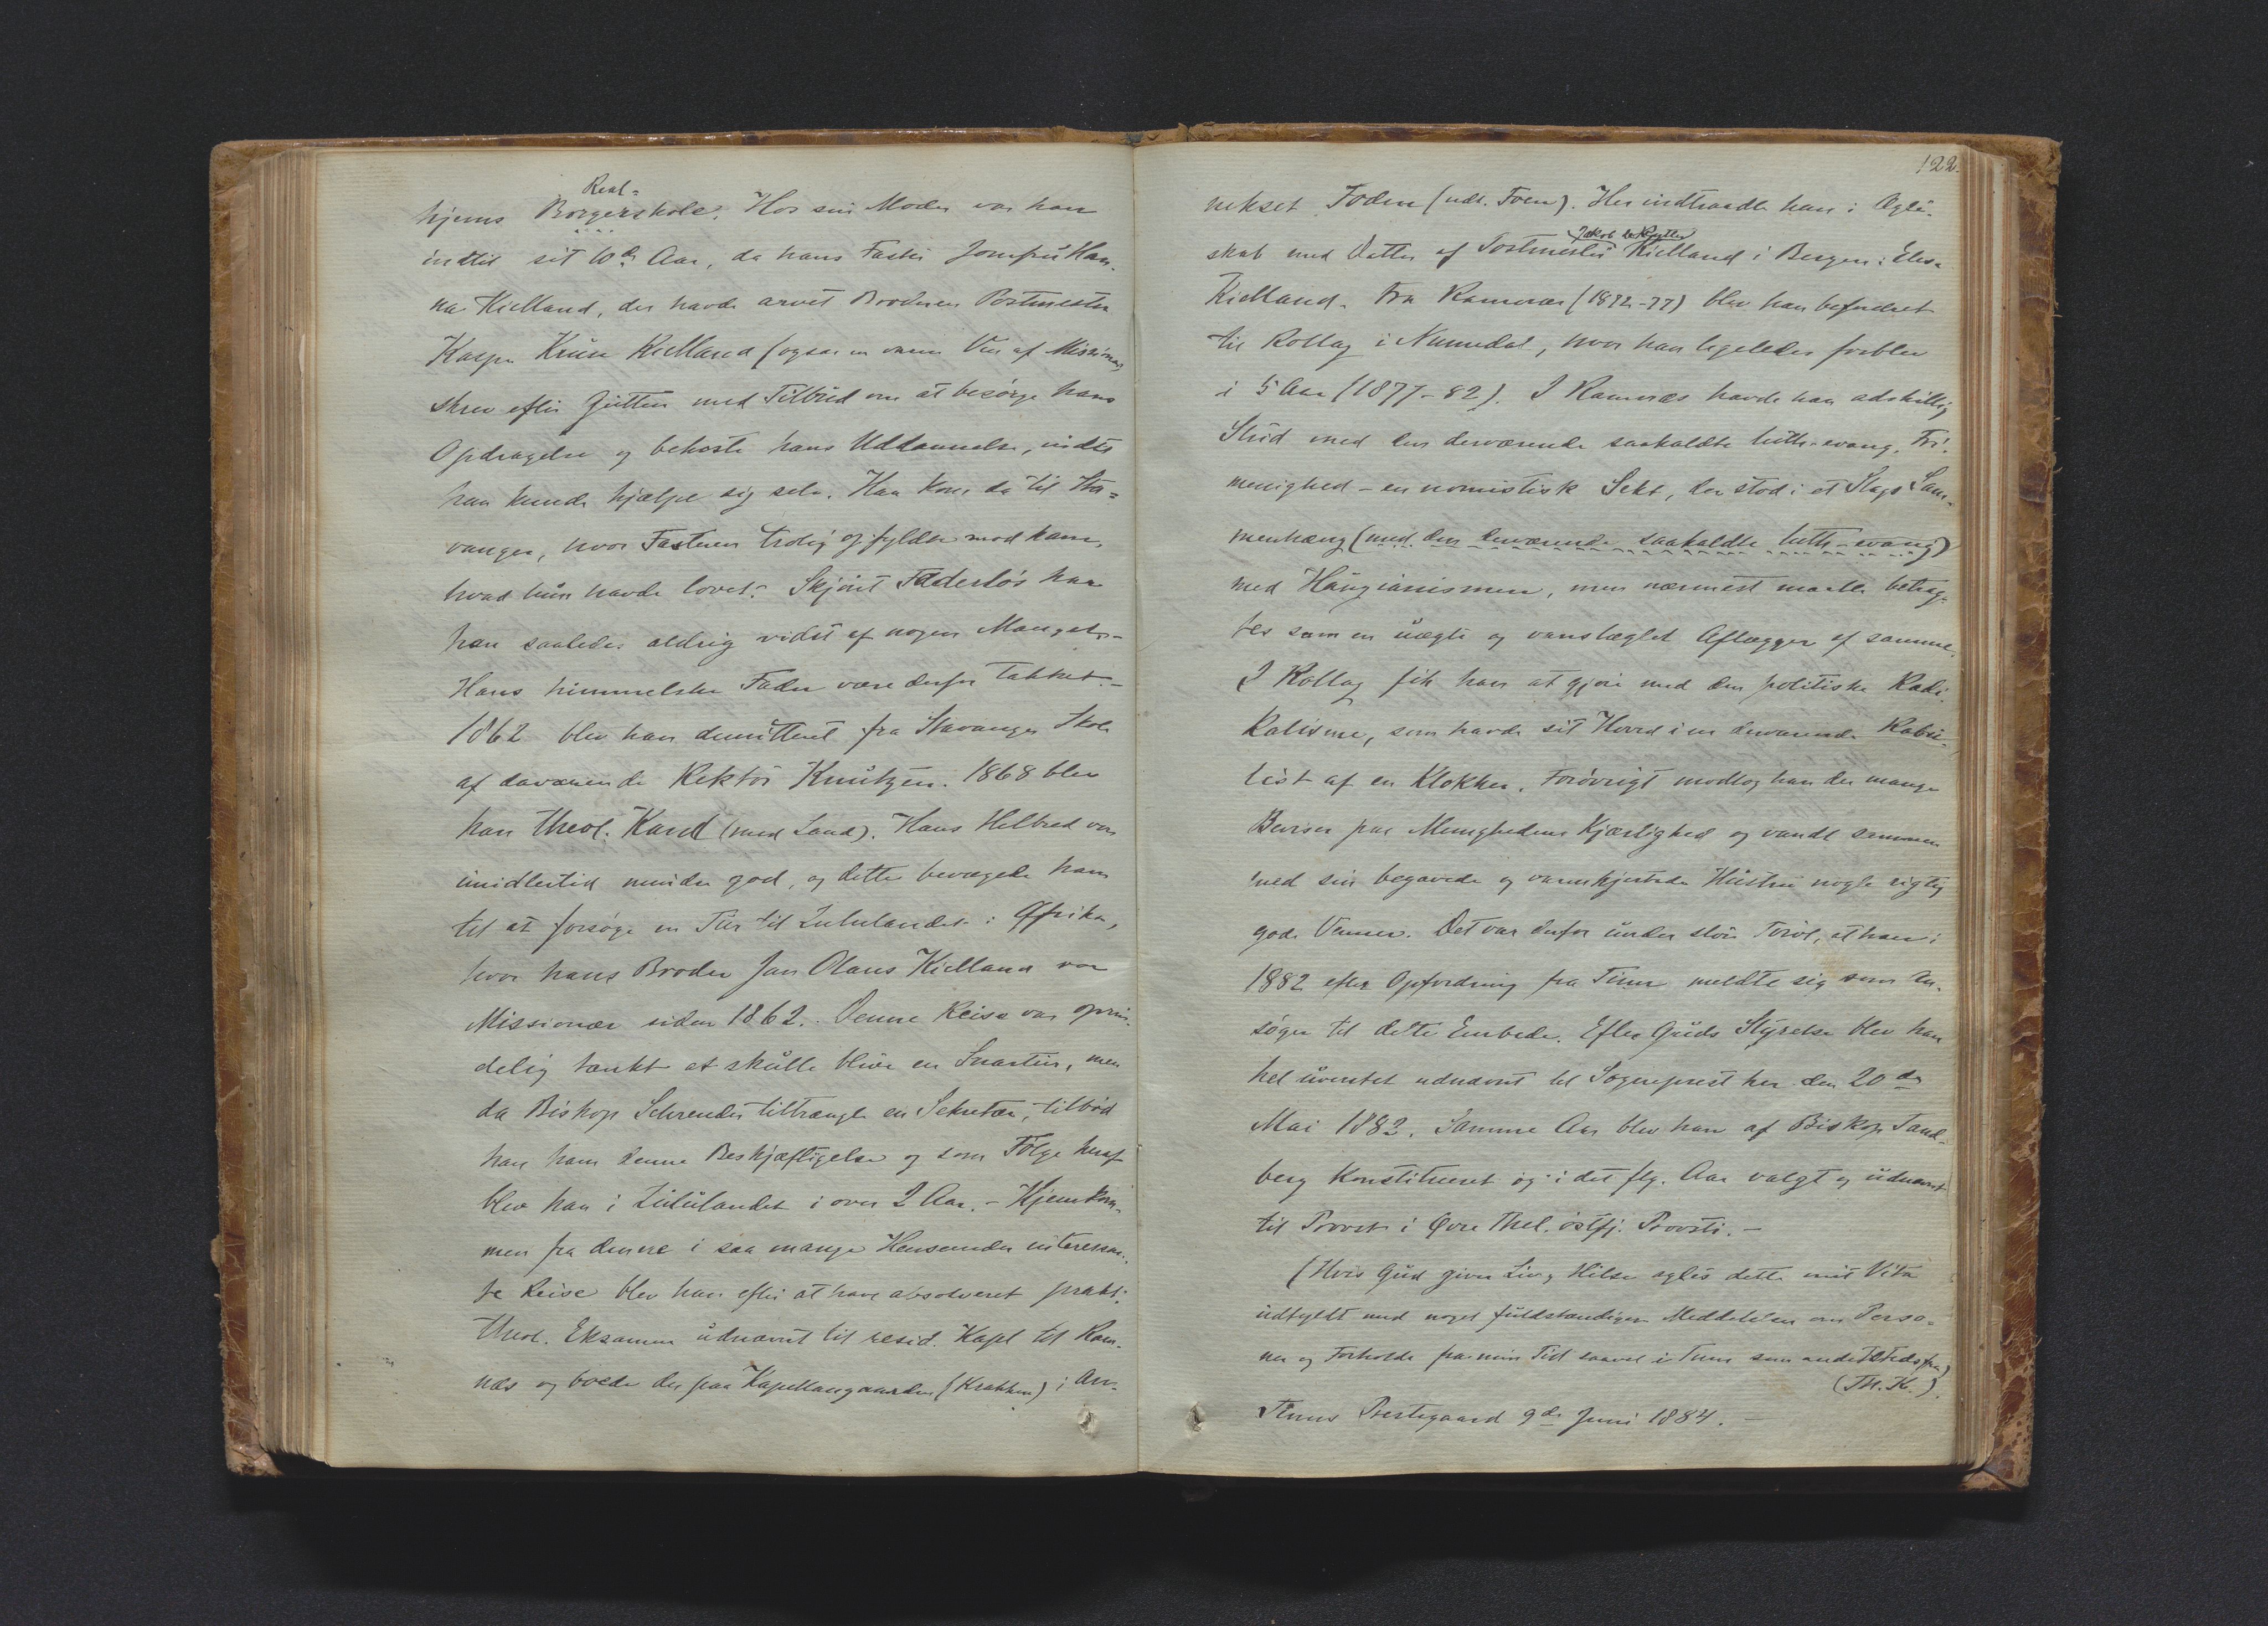 Real-
hjems Borgerskole. Hos sin Moder var han
indtil sit 10de Aar, da hans Faster Jomfru Han-
na Kielland, der havde arvet Broderen Postmester
Kasper Kruse Kielland (ogsaa en varm Ven af Missionen,
skrev efter Gutten med Tilbud om at besørge hans
Opdragelse og bekoste hans Uddannelse, indtil
han kunde hjælpe sig selv. Han kom da til Sta-
vanger, hvor Fasteren trolig opfyldte mod ham,
hvad hun havde lovet. Skjønt Faderløs har
han saaledes aldrig vidst af nogen Mangel.-
Hans himmelske Fader være derfor takket.-
1862 blev han demitteret fra Stavanger Skole
af daværende Rektor Knutzen. 1868 blev
han theol. Kand (med Laud). Hans Helbred var
imidlertid mindre god, og dette bevægede ham
til at forsøge en Tur til Zululandet i Afrika,
hvor hans Broder Jan Olaus Kielland var
Missionær siden 1862. Denne Reise var oprin-
delig tænkt at skulle blive en Snartur, men
da Biskop Schreuder tiltrængte en Sekretær, tilbød
han ham denne Beskjæftigelse og som Følge heraf
blev han i Zululandet i over 2 Aar. - Hjemkom-
men fra denne i saa mange Henseender interessan-
te Reise blev han efter at have absolveret prakt.
theol. Eksamen udnævnt til resid. Kapel til Ram-
næs og boede der paa Kapellangaarden (Krakken) i An-
122.
nekset Foden (udt. Foen). Her indtraadte han i Ægte-
Jakob
skab med Datter af Postmester Kielland i Bergen: Elisa
Kielland. Fra Ramnæs (1872-77) blev han befordret
til Rollag i Numedal, hvor han ligeledes forblev
i 5 Aar (1877-82). I Ramnæs havde han adskillig
Strid med den derværende saakaldte luth.-evang. Fri-
menighed - en nomistisk Sekt, der stod i et Slags Sam-
menhæng (med den derværende saakaldte luth-evang)
med Haugianismen, men nærmest maatte betrag-
tes som en uægte og vanslægtet Aflægger af samme.
I Rollag fik han at gjøre med den politiske Radi-
kalisme, som havde sit Hoved i en derværende Rabu-
list af en Klokker. Forøvrigt modtog han der mange
Beviser paa Menighedens Kjærlighed og vandt sammen
med sin begavede og varmhjertede Hustru nogle rigtig
gode Venner. Det var derfor under stor Tvivl, at han i
1882 efter Opfordring fra Tinn meldte sig som An-
søger til dette Embede. Efter Guds Styrelse blev han
hel uventet udnævnt til Sogneprest her den 20de
Mai 1882. Samme Aar blev han af Biskop Tand-
berg Konstitueret og i det flg. Aar valgt og udnævnt
til Provst i Øvre Thel. østfj. Provsti. -
(Hvis Gud giver Liv og Helse agtes dette mit Vita
udfyldt med noget fuldstændigere Meddelelser om Perso-
ner og Forholde fra min Tid saavel i Tinn som andetstedsfra)
(Th. K.).
Tinns Prestegaard 9de Juni 1884. -